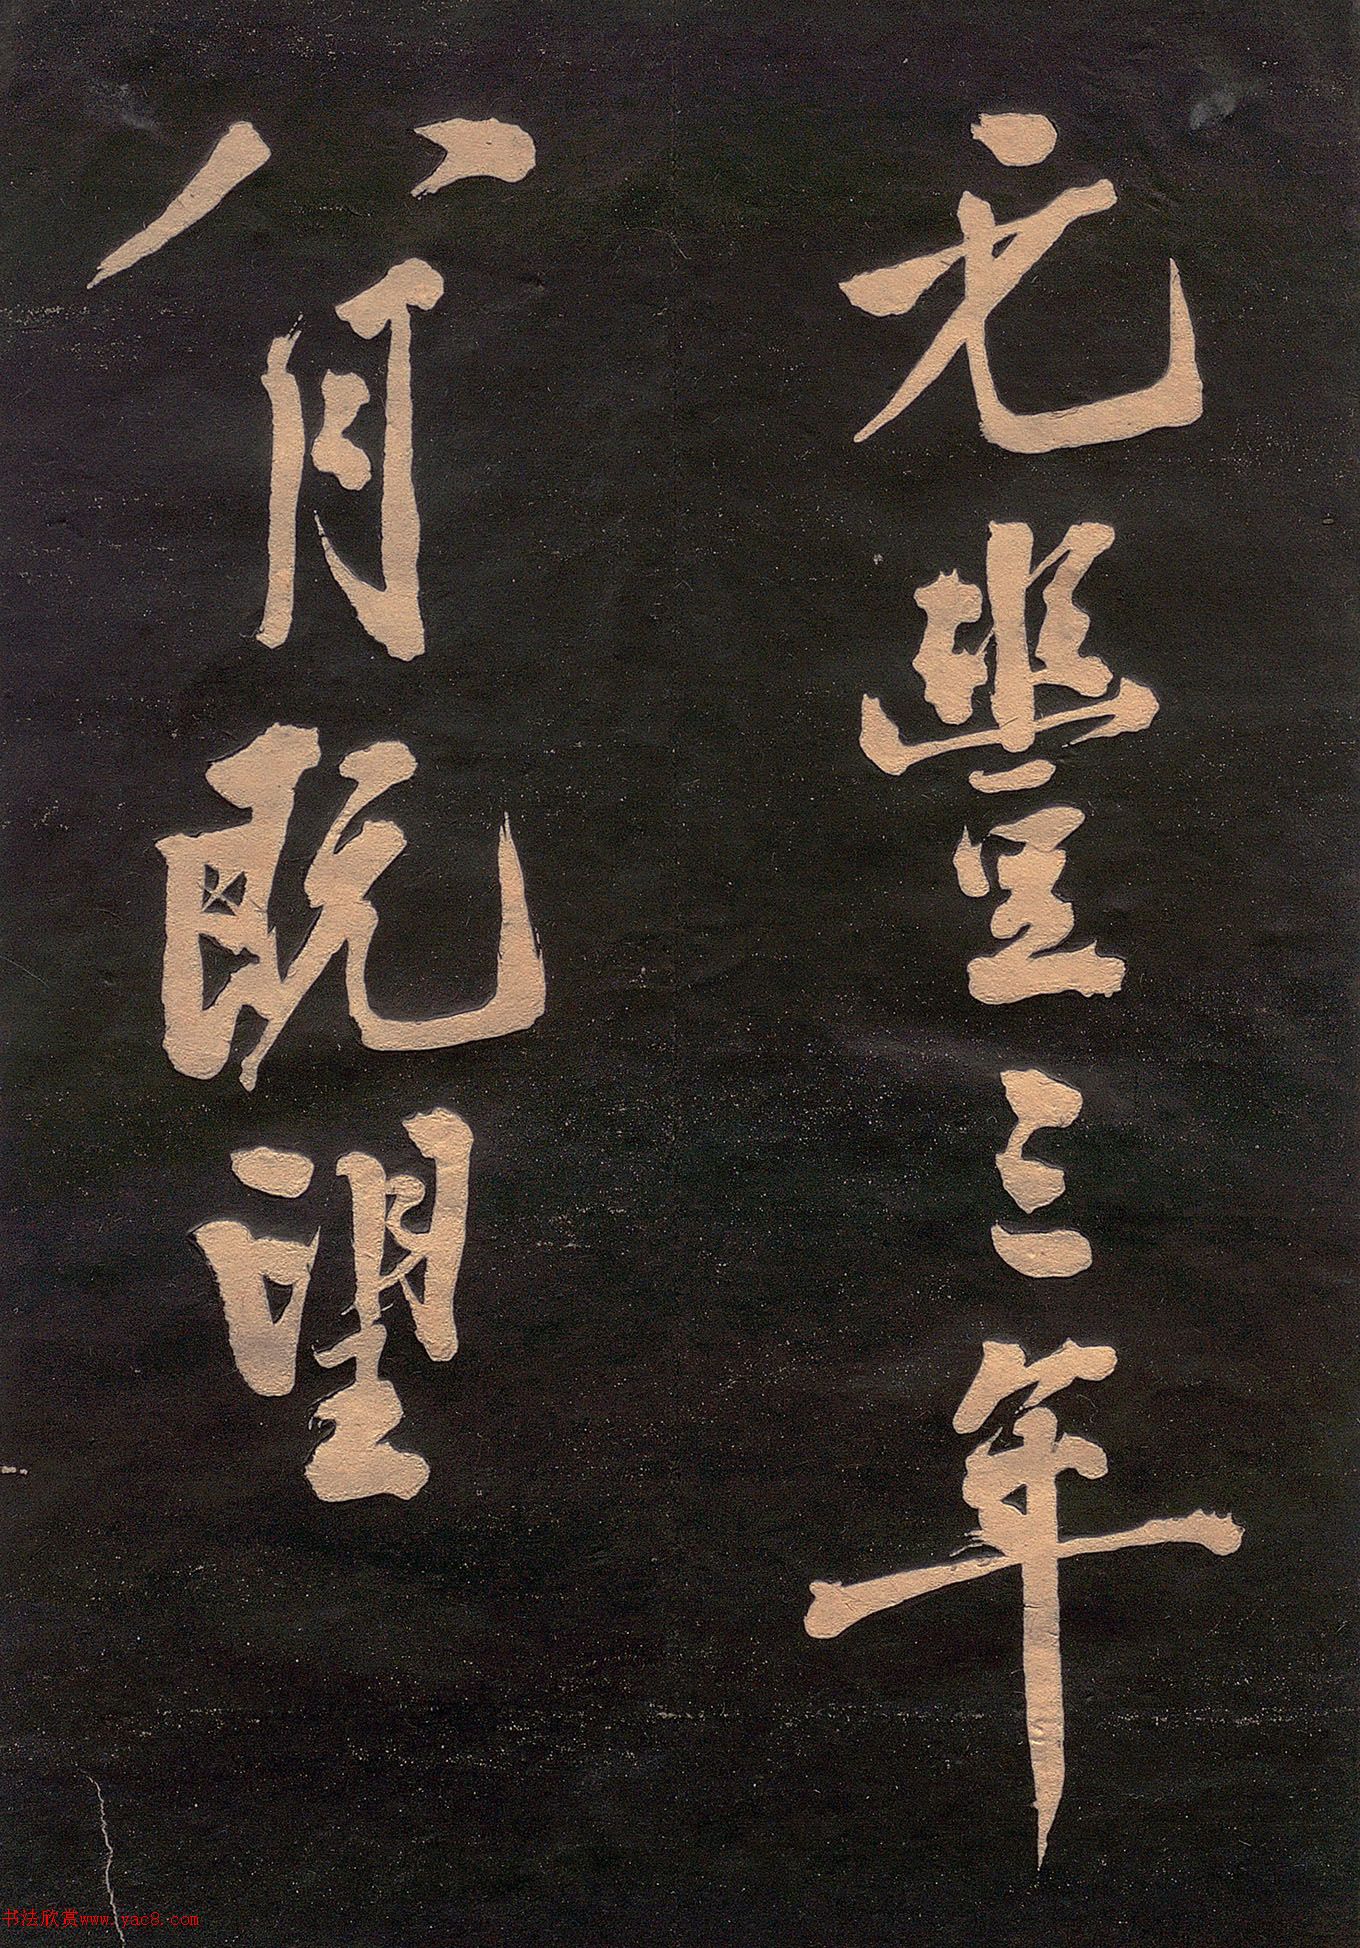 元豐三年
八月既望
书法欣赏www.yac8.com